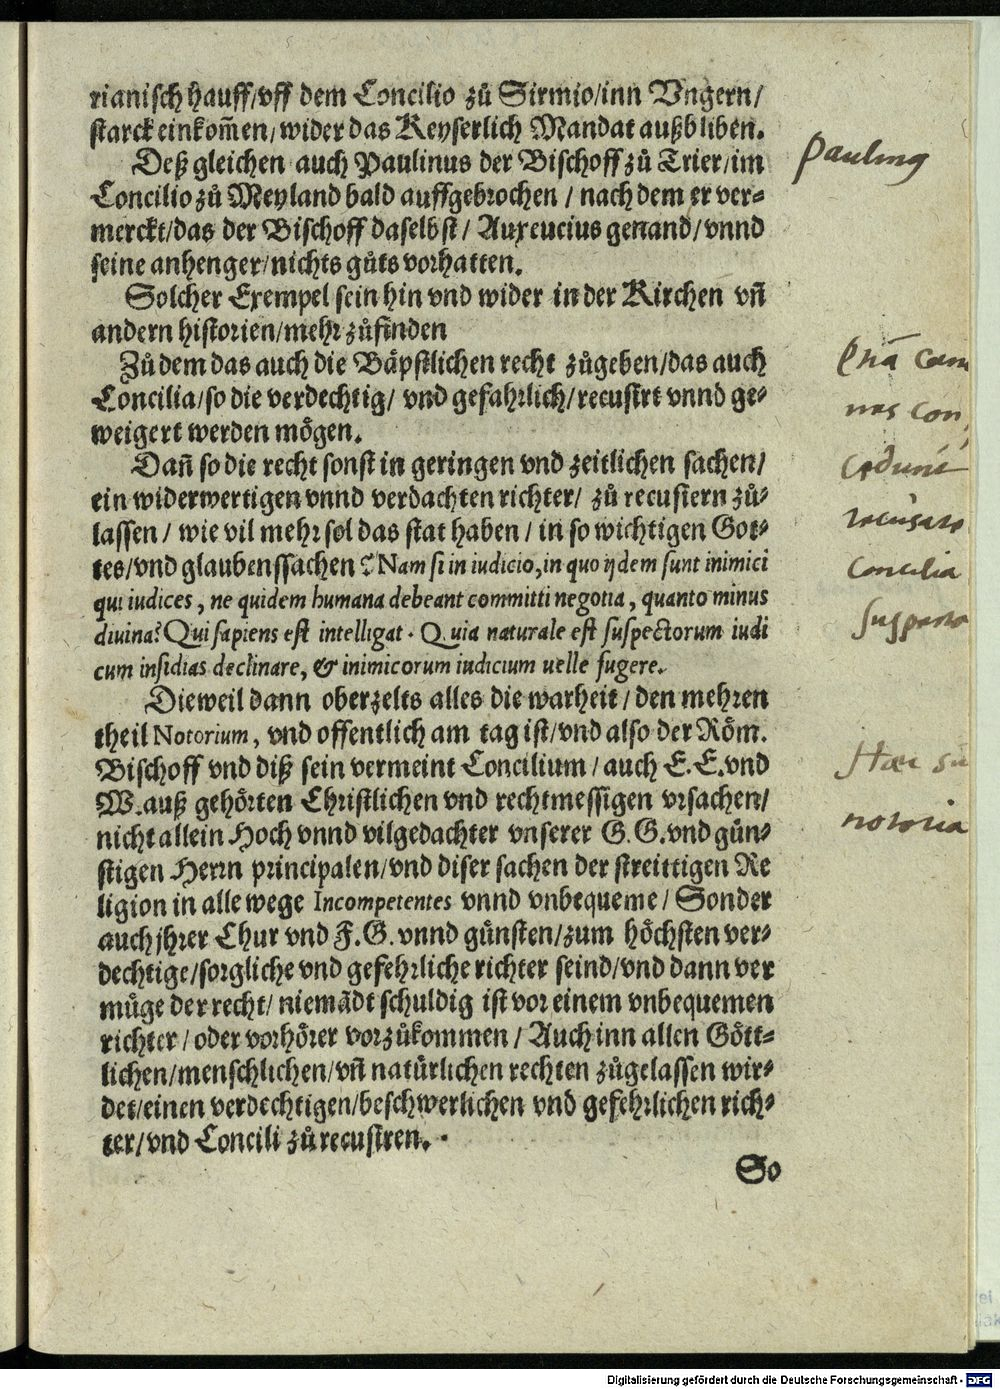 rianisch hauff/vff dem Concilio zů Sirmio/inn Vngern/
starck einkom̃en/wider das Keyserlich Mandat außbliben.
Deß gleichen auch Paulinus der Bischoff zů Trier/im
Concilio zů Meyland bald auffgebrochen / nach dem er ver-
merckt/das der Bischoff daselbst/ Auxeucius genand/vnnd
seine anhenger/nichts gůts vorhatten.
Solcher Exempel sein hin vnd wider in der Kirchen vñ
andern historien/mehr zůfinden
Zů dem das auch die Bäpstlichen recht zůgeben/das auch
Concilia/so die verdechtig/ vnd gefahrlich/recusirt vnnd ge-
weigert werden mögen.
Dañ so die recht sonst in geringen vnd zeitlichen sachen/
ein widerwertigen vnnd verdachten richter/ zů recusiern zů-
lassen / wie vil mehr sol das stat haben / in so wichtigen Got-
tes/vnd glaubenssachen? Nam si in iudicio, in quo ijdem sunt inimici
qui iudices, ne quidem humana debeant committi negotia, quanto minus
diuina? Qui sapiens est intelligat. Quia naturale est suspectorum iudi
cum insidias declinare, & inimicorum iudicium uelle fugere.
Dieweil dann oberzelts alles die warheit / den mehren
theil Notorium, vnd offentlich am tag ist/vnd also der Röm.
Bischoff vnd diß sein vermeint Concilium / auch E. E. vnd
W. auß gehörten Christlichen vnd rechtmessigen vrsachen/
nicht allein Hoch vnnd vilgedachter vnserer G. G. vnd gün-
stigen Herrn principalen/vnd diser sachen der streittigen Re
ligion in alle wege Incompetentes vnnd vnbequeme / Sonder
auch jhrer Chur vnd F. G. vnnd günsten/zum höchsten ver-
dechtige/sorgliche vnd gefehrliche richter seind/vnd dann ver
müge der recht/ niemãdt schuldig ist vor einem vnbequemen
richter / oder vorhörer vorzůkommen / Auch inn allen Gött-
lichen/menschlichen/vñ natürlichen rechten zůgelassen wir-
det/einen verdechtigen/beschwerlichen vnd gefehrlichen rich-
ter/vnd Concili zů recusiren.
So
Paulinus
recusare
Concilia
suspecta
notoria
Digitalisierung gefördert durch die Deutsche Forschungsgemeinschaft - DFG